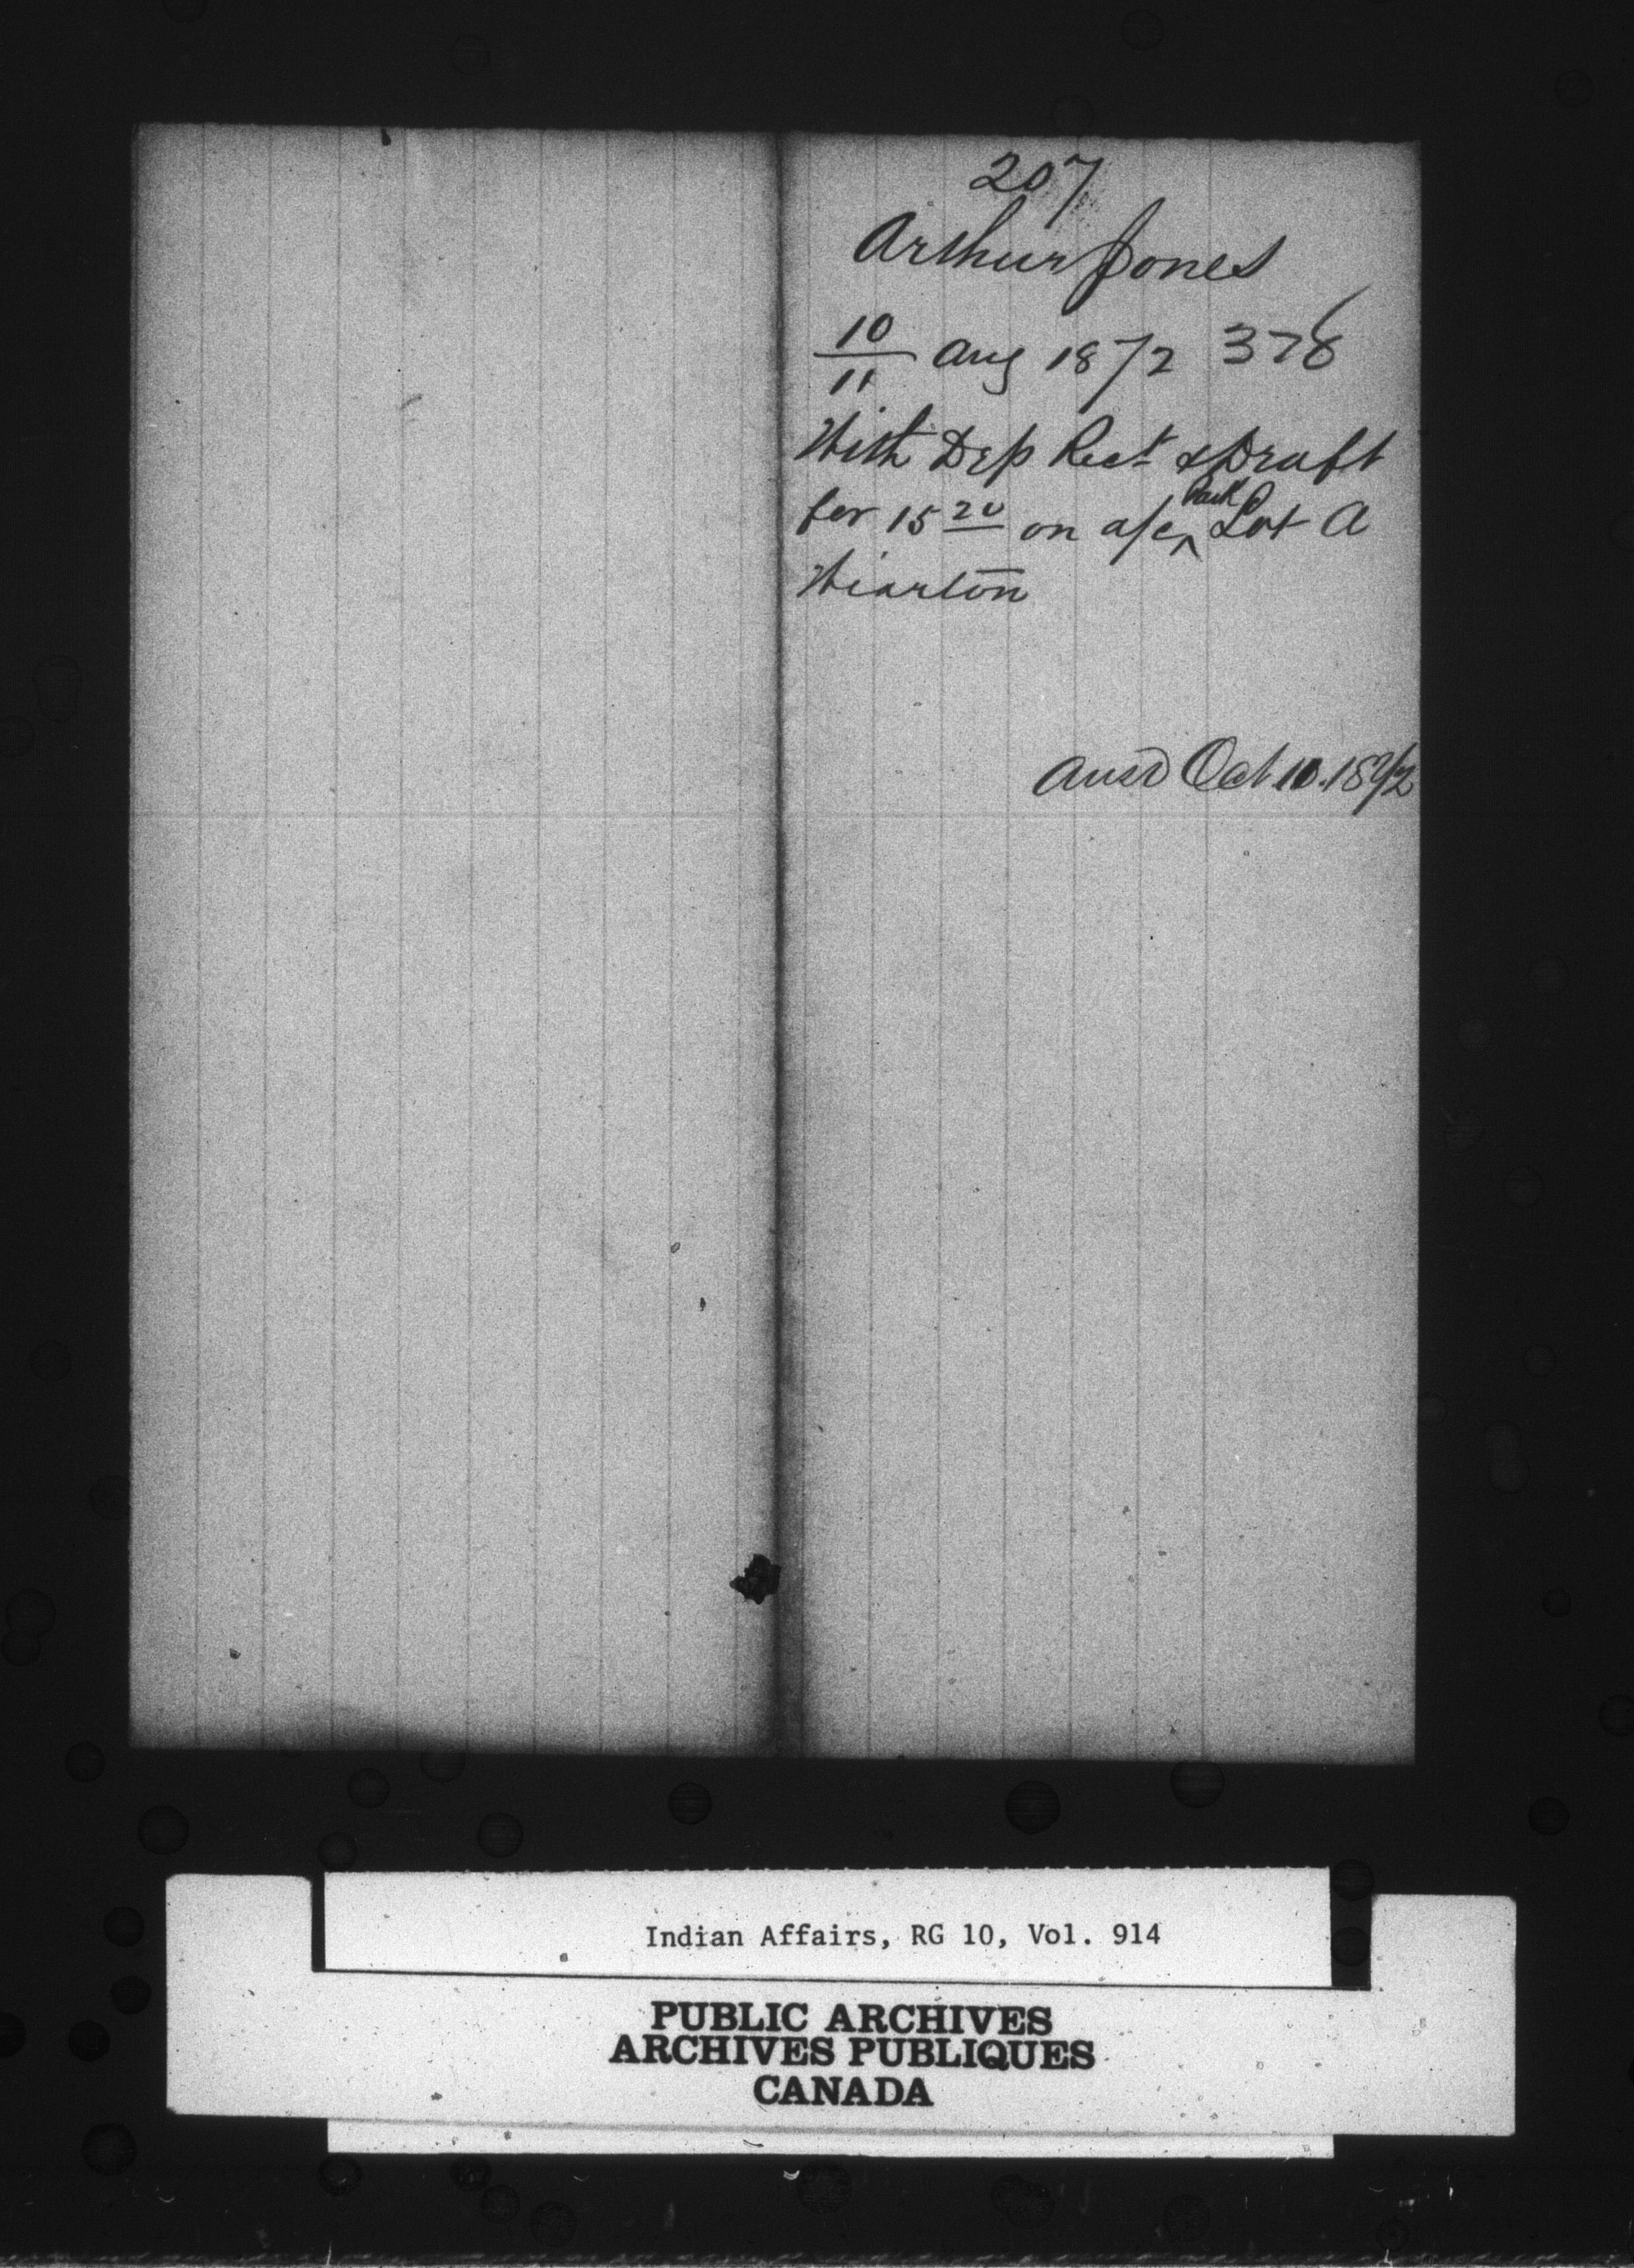 207
Arthur Jones
10/11 Aug 1872 378
With Dep Rect & Draft
for 15 20 on a/c ^Park Lot A
Wiarton
Ansd Oct 10. 1872
Indian Affairs, RG 10, Vol. 914
PUBLIC ARCHIVES
ARCHIVES PUBLIQUES
CANADA